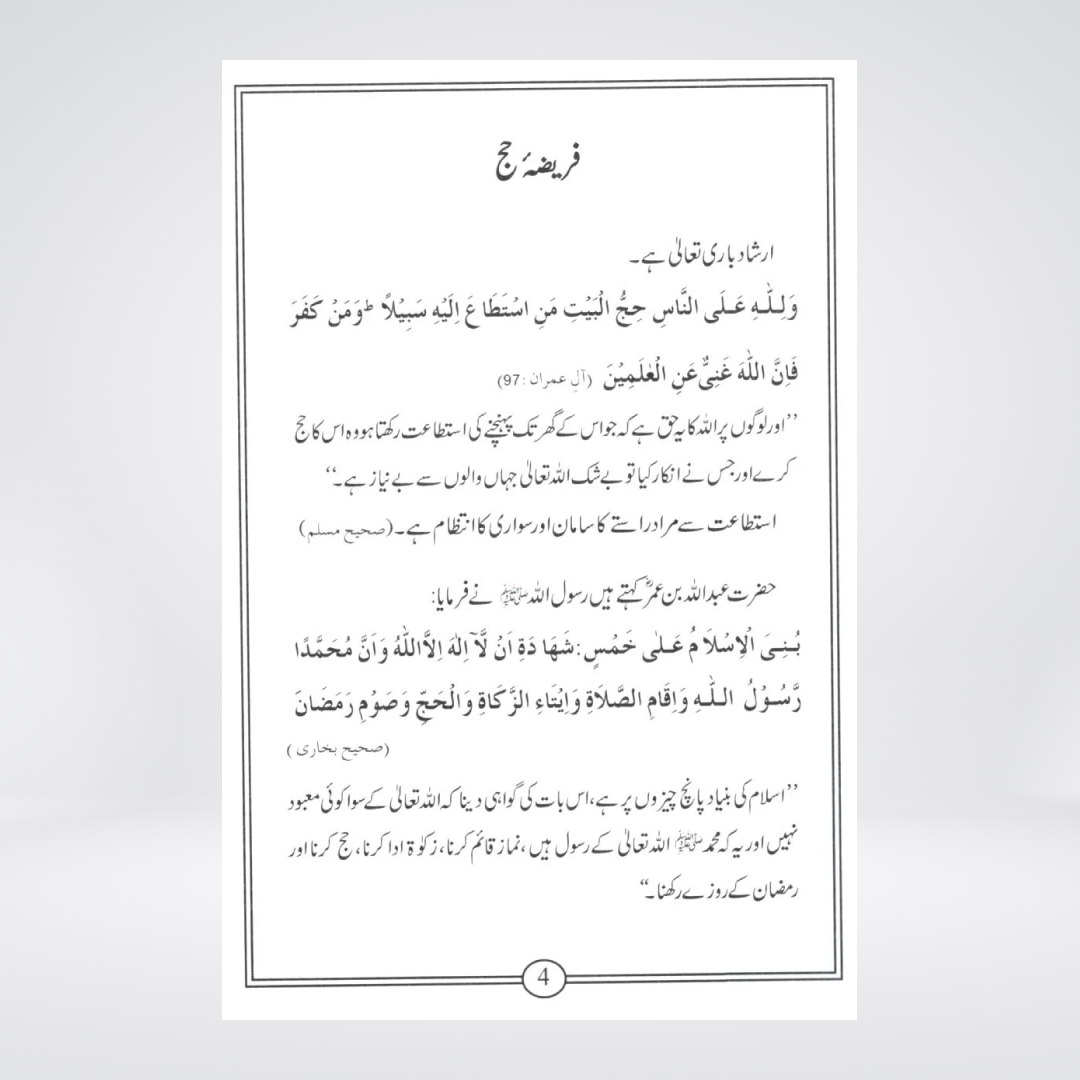 فریضۂ حج
ارشاد باری تعالیٰ ہے۔
وَلِلّٰهِ عَلَى النَّاسِ حِجُّ الْبَيْتِ مَنِ اسْتَطَاعَ اِلَيْهِ سَبِيْلاً ط وَمَنْ كَفَرَ
فَاِنَّ اللّٰهَ غَنِىٌّ عَنِ الْعٰلَمِيْنَ (آلِ عمران :97)
’’اور لوگوں پر اللہ کا یہ حق ہے کہ جو اس کے گھر تک پہنچنے کی استطاعت رکھتا ہو وہ اس کا حج
کرے اور جس نے انکار کیا تو بے شک اللہ تعالیٰ جہاں والوں سے بے نیاز ہے۔‘‘
استطاعت سے مراد راستے کا سامان اور سواری کا انتظام ہے۔ (صحیح مسلم)
حضرت عبداللہ بن عمرؓ کہتے ہیں رسول اللہ ﷺ نے فرمایا:
بُنِىَ الْاِسْلَامُ عَلٰى خَمْسٍ: شَهَادَةِ اَنْ لَّآ اِلٰهَ اِلَّا اللّٰهُ وَاَنَّ مُحَمَّدًا
رَّسُوْلُ اللّٰهِ وَاِقَامِ الصَّلَاةِ وَاِيْتَاءِ الزَّكَاةِ وَالْحَجِّ وَصَوْمِ رَمَضَانَ
(صحیح بخاری)
’’اسلام کی بنیاد پانچ چیزوں پر ہے، اس بات کی گواہی دینا کہ اللہ تعالیٰ کے سوا کوئی معبود
نہیں اور یہ کہ محمد ﷺ اللہ تعالیٰ کے رسول ہیں، نماز قائم کرنا، زکوٰۃ ادا کرنا، حج کرنا اور
رمضان کے روزے رکھنا۔‘‘
4